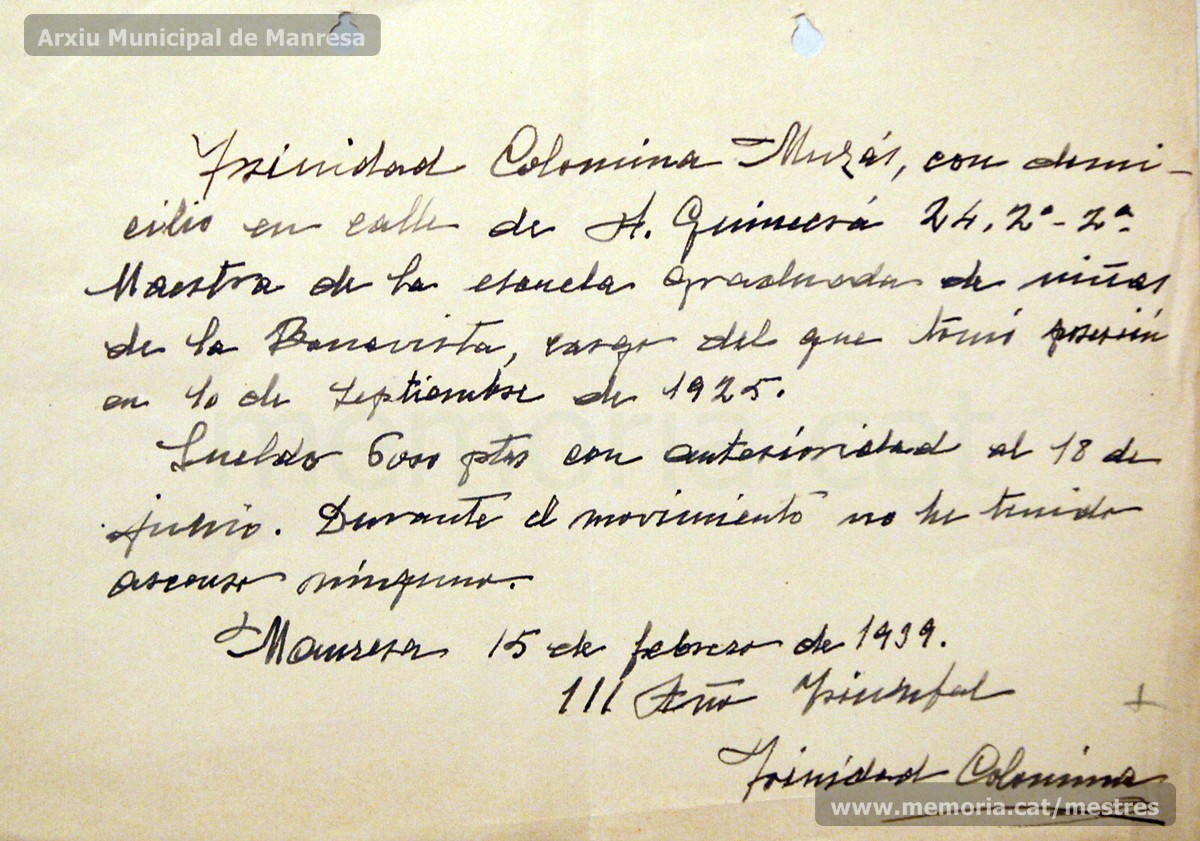 Arxiu Municipal de Manresa
Trinidad Colomina Murás, con domi-
cilio en calle de A. Guimerá 24, 2º-2ª
Maestra de la escuela graduada de niñas
de la Bonavista, cargo del que tomó posesión
en 10 de Septiembre de 1925.
Sueldo 6000 ptas con anterioridad al 18 de
julio. Durante el movimiento no he tenido
ascenso ninguno.
Manresa 15 de febrero de 1939.
III Año Triunfal
Trinidad Colomina
memoria.cat
www.memoria.cat/mestres